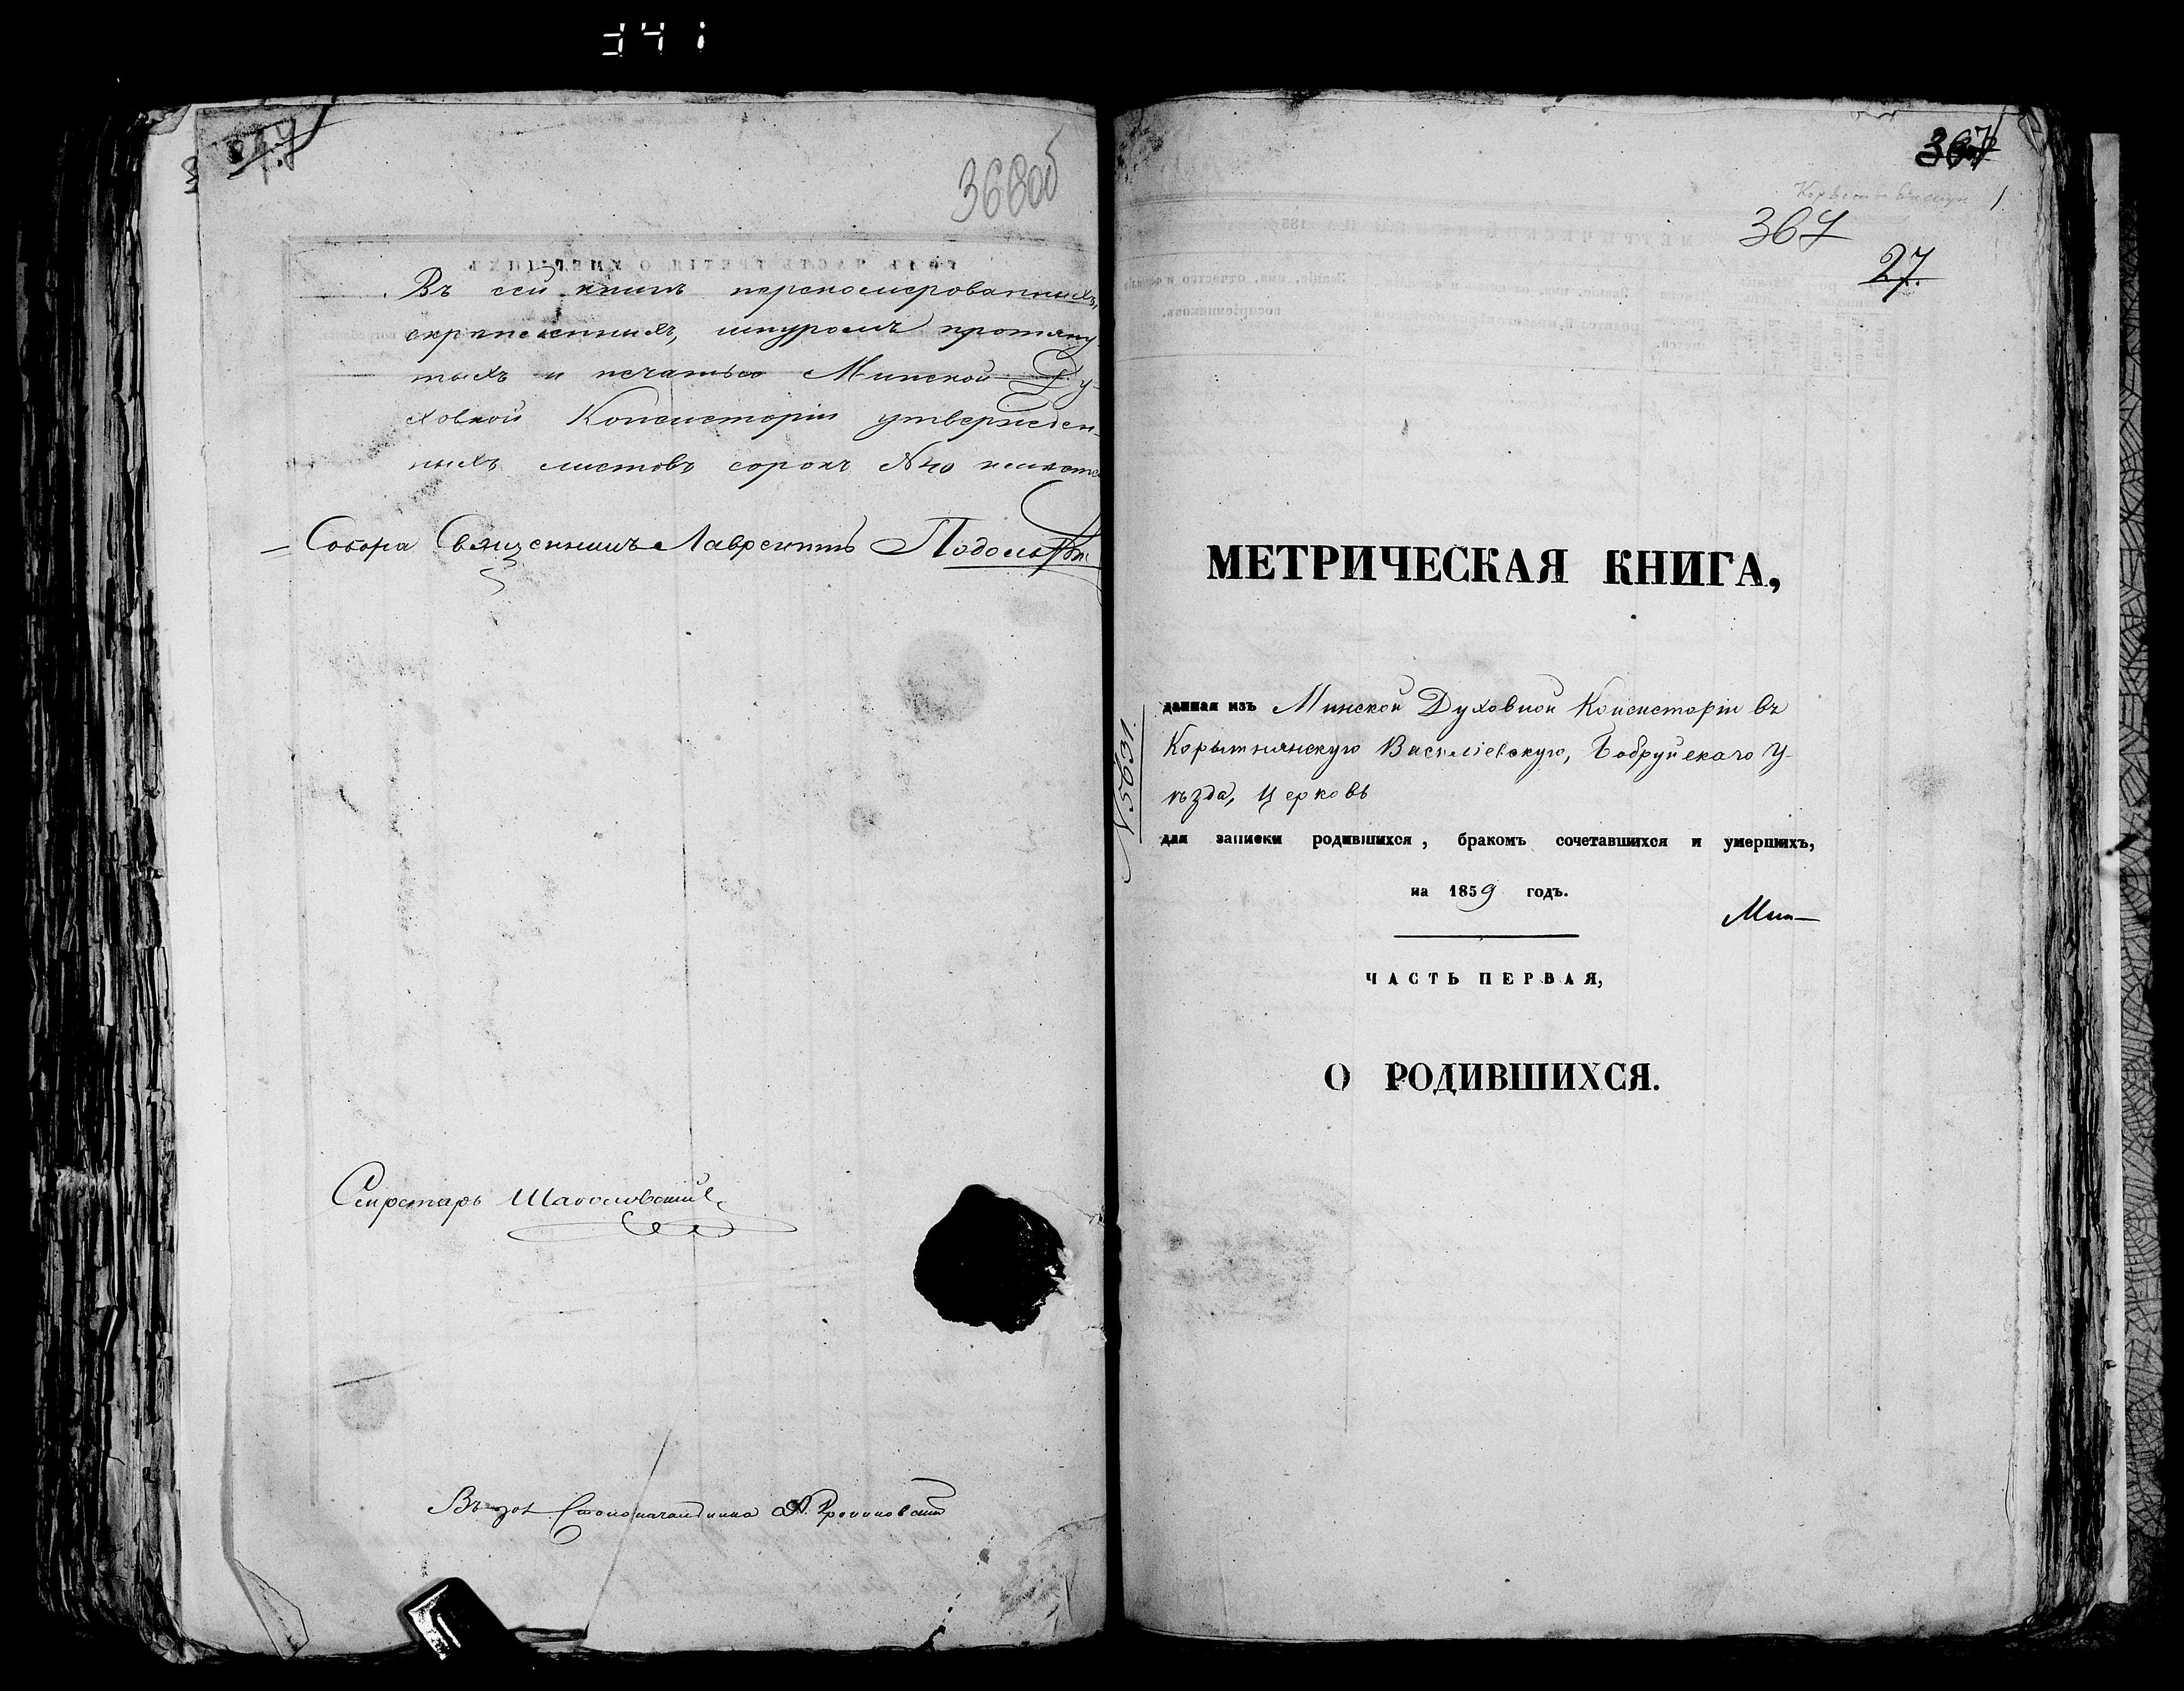 341
366об
Въ сей книгѣ перенумерованныхъ,
скрѣпленныхъ, шнуромъ протяну-
тыхъ и печатью Минской Ду-
ховной Консисторіи утвержден-
ныхъ листовъ сорокъ №40
Собора Священникъ Лаврентій
Секретарь
Столоначальника
367
367
27.
МЕТРИЧЕСКАЯ КНИГА,
№ 5631.
данная изъ Минской Духовной Консисторіи въ
Корытнянскую Василіевскую, Бобруйскаго У-
ѣзда, Церковь
для записки родившихся, бракомъ сочетавшихся и умершихъ,
на 1859 годъ.
Мин—
ЧАСТЬ ПЕРВАЯ,
О РОДИВШИХСЯ.